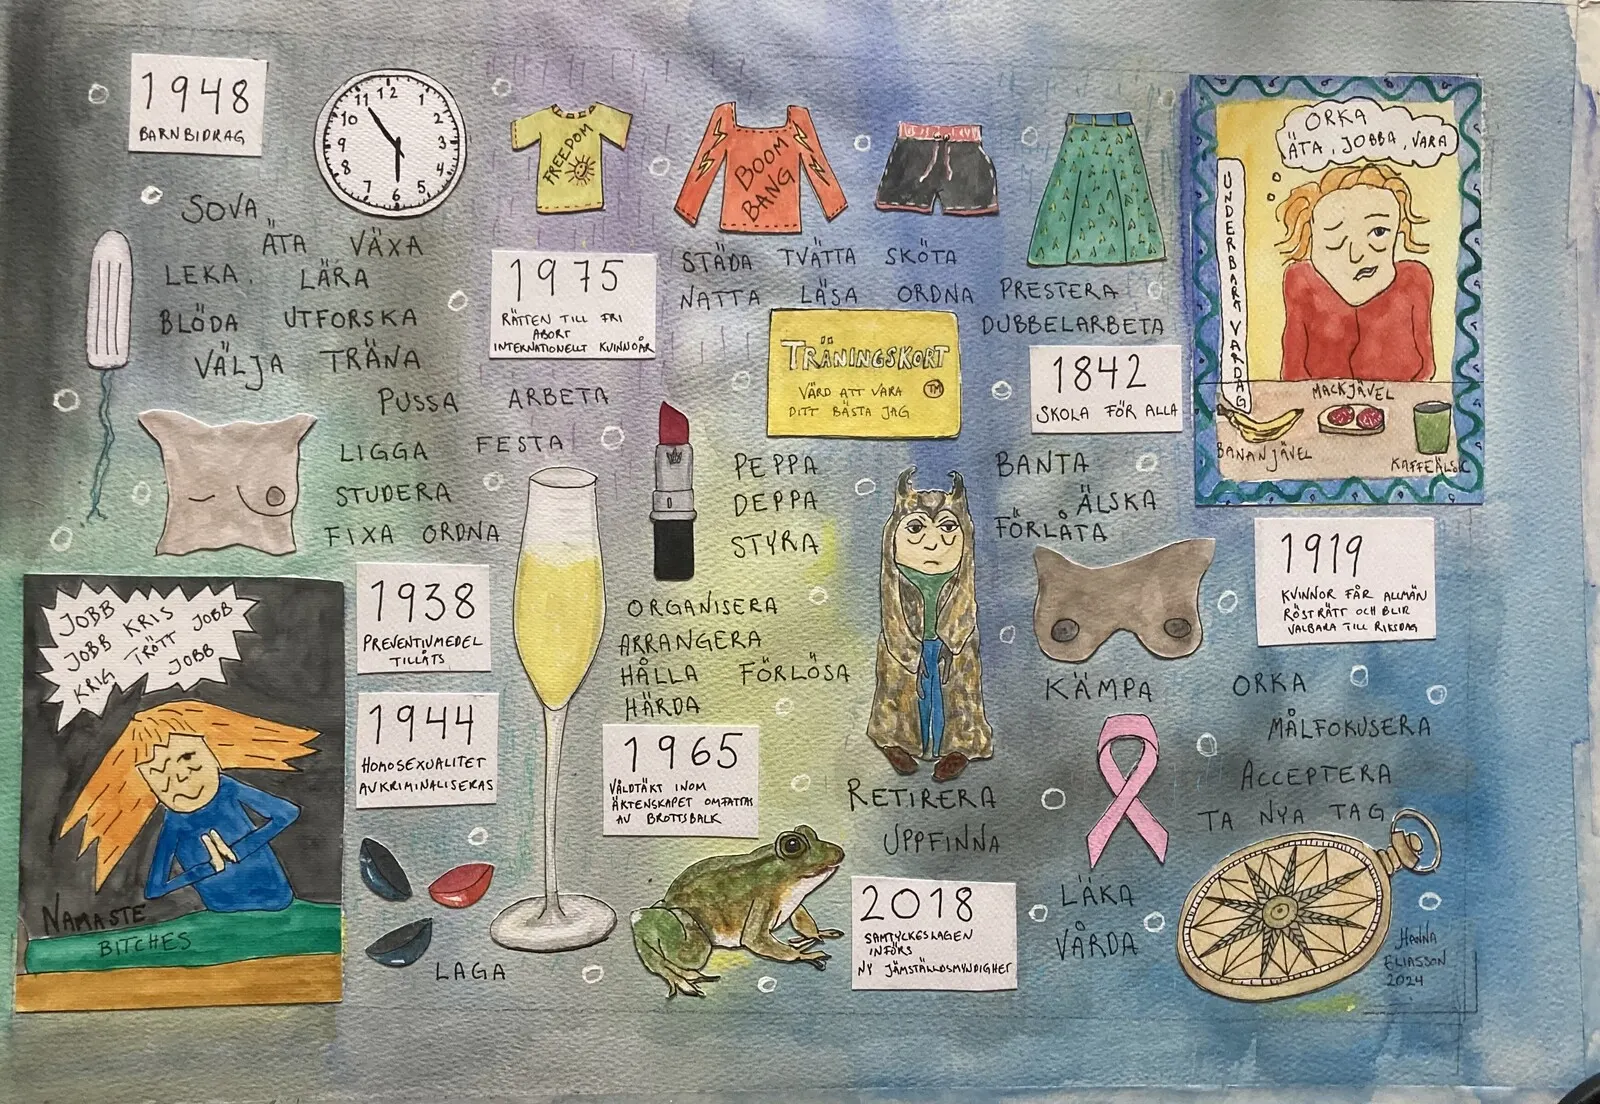 1948
BARNBIDRAG
12
1
2
3
4
5
6
7
8
9
10
11
FREEDOM
BOOM
BANG
ORKA
ÄTA, JOBBA, VARA
UNDERBARA VARDAG
MACKJÄVEL
BANANJÄVEL
SOVA
ÄTA VÄXA
LEKA. LÄRA
BLÖDA UTFORSKA
VÄLJA TRÄNA
PUSSA ARBETA
LIGGA FESTA
STUDERA
FIXA ORDNA
1975
RÄTTEN TILL FRI
ABORT
INTERNATIONELLT KVINNOÅR
STÄDA TVÄTTA SKÖTA
NATTA LÄSA ORDNA PRESTERA
DUBBELARBETA
TRÄNINGSKORT
VÄRD ATT VARA TM
DITT BÄSTA JAG
1842
SKOLA FÖR ALLA
PEPPA
DEPPA
STYRA
BANTA
ÄLSKA
FÖRLÅTA
1919
KVINNOR FÅR ALLMÄN
RÖSTRÄTT OCH BLIR
VALBARA TILL RIKSDAG
JOBB
JOBB KRIS JOBB
KRIG TRÖTT JOBB
NAMASTE
BITCHES
1938
PREVENTIVMEDEL
TILLÅTS
1944
HOMOSEXUALITET
AVKRIMINALISERAS
ORGANISERA
ARRANGERA
HÅLLA FÖRLÖSA
HÄRDA
1965
VÅLDTÄKT INOM
ÄKTENSKAPET OMFATTAS
AV BROTTSBALK
KÄMPA
ORKA
MÅLFOKUSERA
ACCEPTERA
TA NYA TAG
RETIRERA
UPPFINNA
2018
SAMTYCKESLAGEN
INFÖRS
NY JÄMSTÄLLDSMYNDIGHET
LÄKA
VÅRDA
LAGA
HANNA
ELIASSON
2024